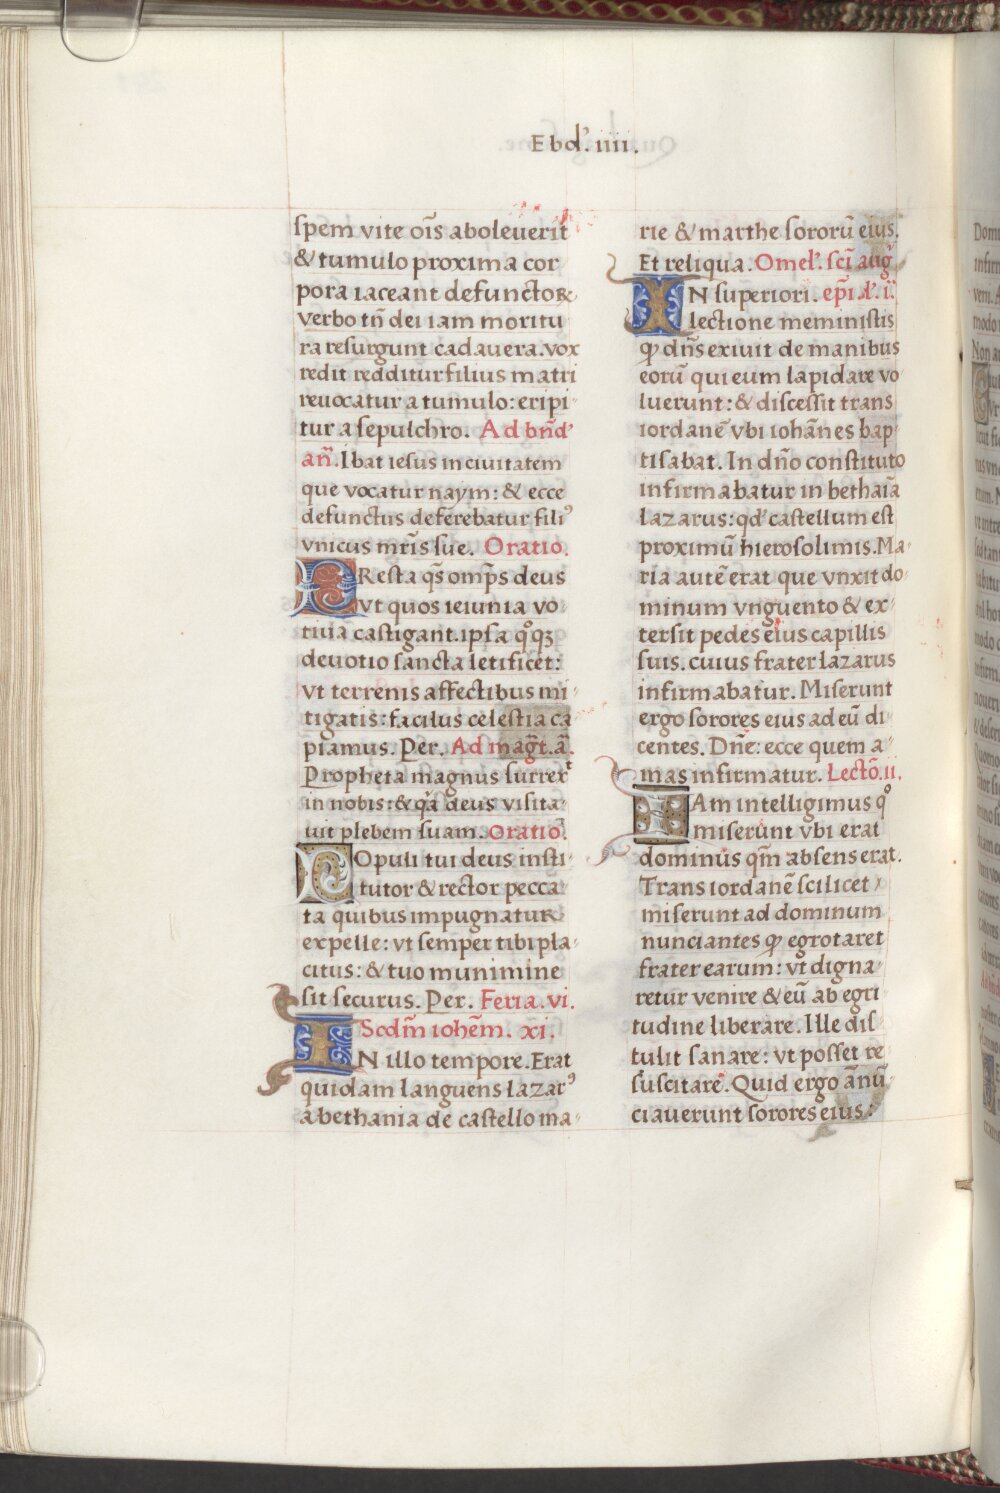 Ebdꝰ. iiii.
spem vite oīs aboleuerit
& tumulo proxima cor
pora iaceant defunctoꝝ
verbo tn̄ dei iam moritu
ra resurgunt cadauera. vox
redit redditur filius matri
reuocatur a tumulo: eripi
tur a sepulchro. Ad bn̄dꝰ
an̄. Ibat iesus in ciuitatem
que vocatur naym: & ecce
defunctus deferebatur filiꝰ
vnicus mr̄is sue. Oratio.
PResta qs̄ omp̄s deus
vt quos ieiunia vo
tiua castigant. ipsa qͦqꝫ
deuotio sancta letificet:
vt terrenis affectibus mi
tigatis: facilus celestia ca
piamus. Per. Ad maḡt. ā.
Propheta magnus surrexͭ
in nobis: & qā deus visita
uit plebem suam. Oratio.
POpuli tui deus insti
tutor & rector pecca
ta quibus impugnatur
expelle: vt semper tibi pla
citus: & tuo munimine
sit securus. Per. Feria. vi.
Scdm̄ iohēm. xi.
IN illo tempore. Erat
quidam languens lazarꝰ
a bethania de castello ma
rie & marthe sororū eius.
Et reliqua. Omelꝰ. scī aug
IN superiori. ep̄i. lꝰ. i.
lectione meministis
ꝙ dn̄s exiuit de manibus
eorū qui eum lapidare vo
luerunt: & discessit trans
iordanē vbi iohānes bap
tisabat. In dn̄o constituto
infirmabatur in bethaīa
lazarus: qdꝰ castellum est
proximū hierosolimis. Ma
ria autē erat que vnxit do
minum vnguento & ex
tersit pedes eius capillis
suis. cuius frater lazarus
infirmabatur. Miserunt
ergo sorores eius ad eū di
centes. Dn̄e: ecce quem a
mas infirmatur. Lectō. ii.
IAm intelligimus qͦ
miserunt vbi erat
dominus qm̄ absens erat.
Trans iordanē scilicet
miserunt ad dominum
nunciantes ꝙ egrotaret
frater earum: vt digna
retur venire & eū ab egri
tudine liberare. Ille dis
tulit sanare: vt posset re
suscitare. Quid ergo ānū
ciauerunt sorores eius: